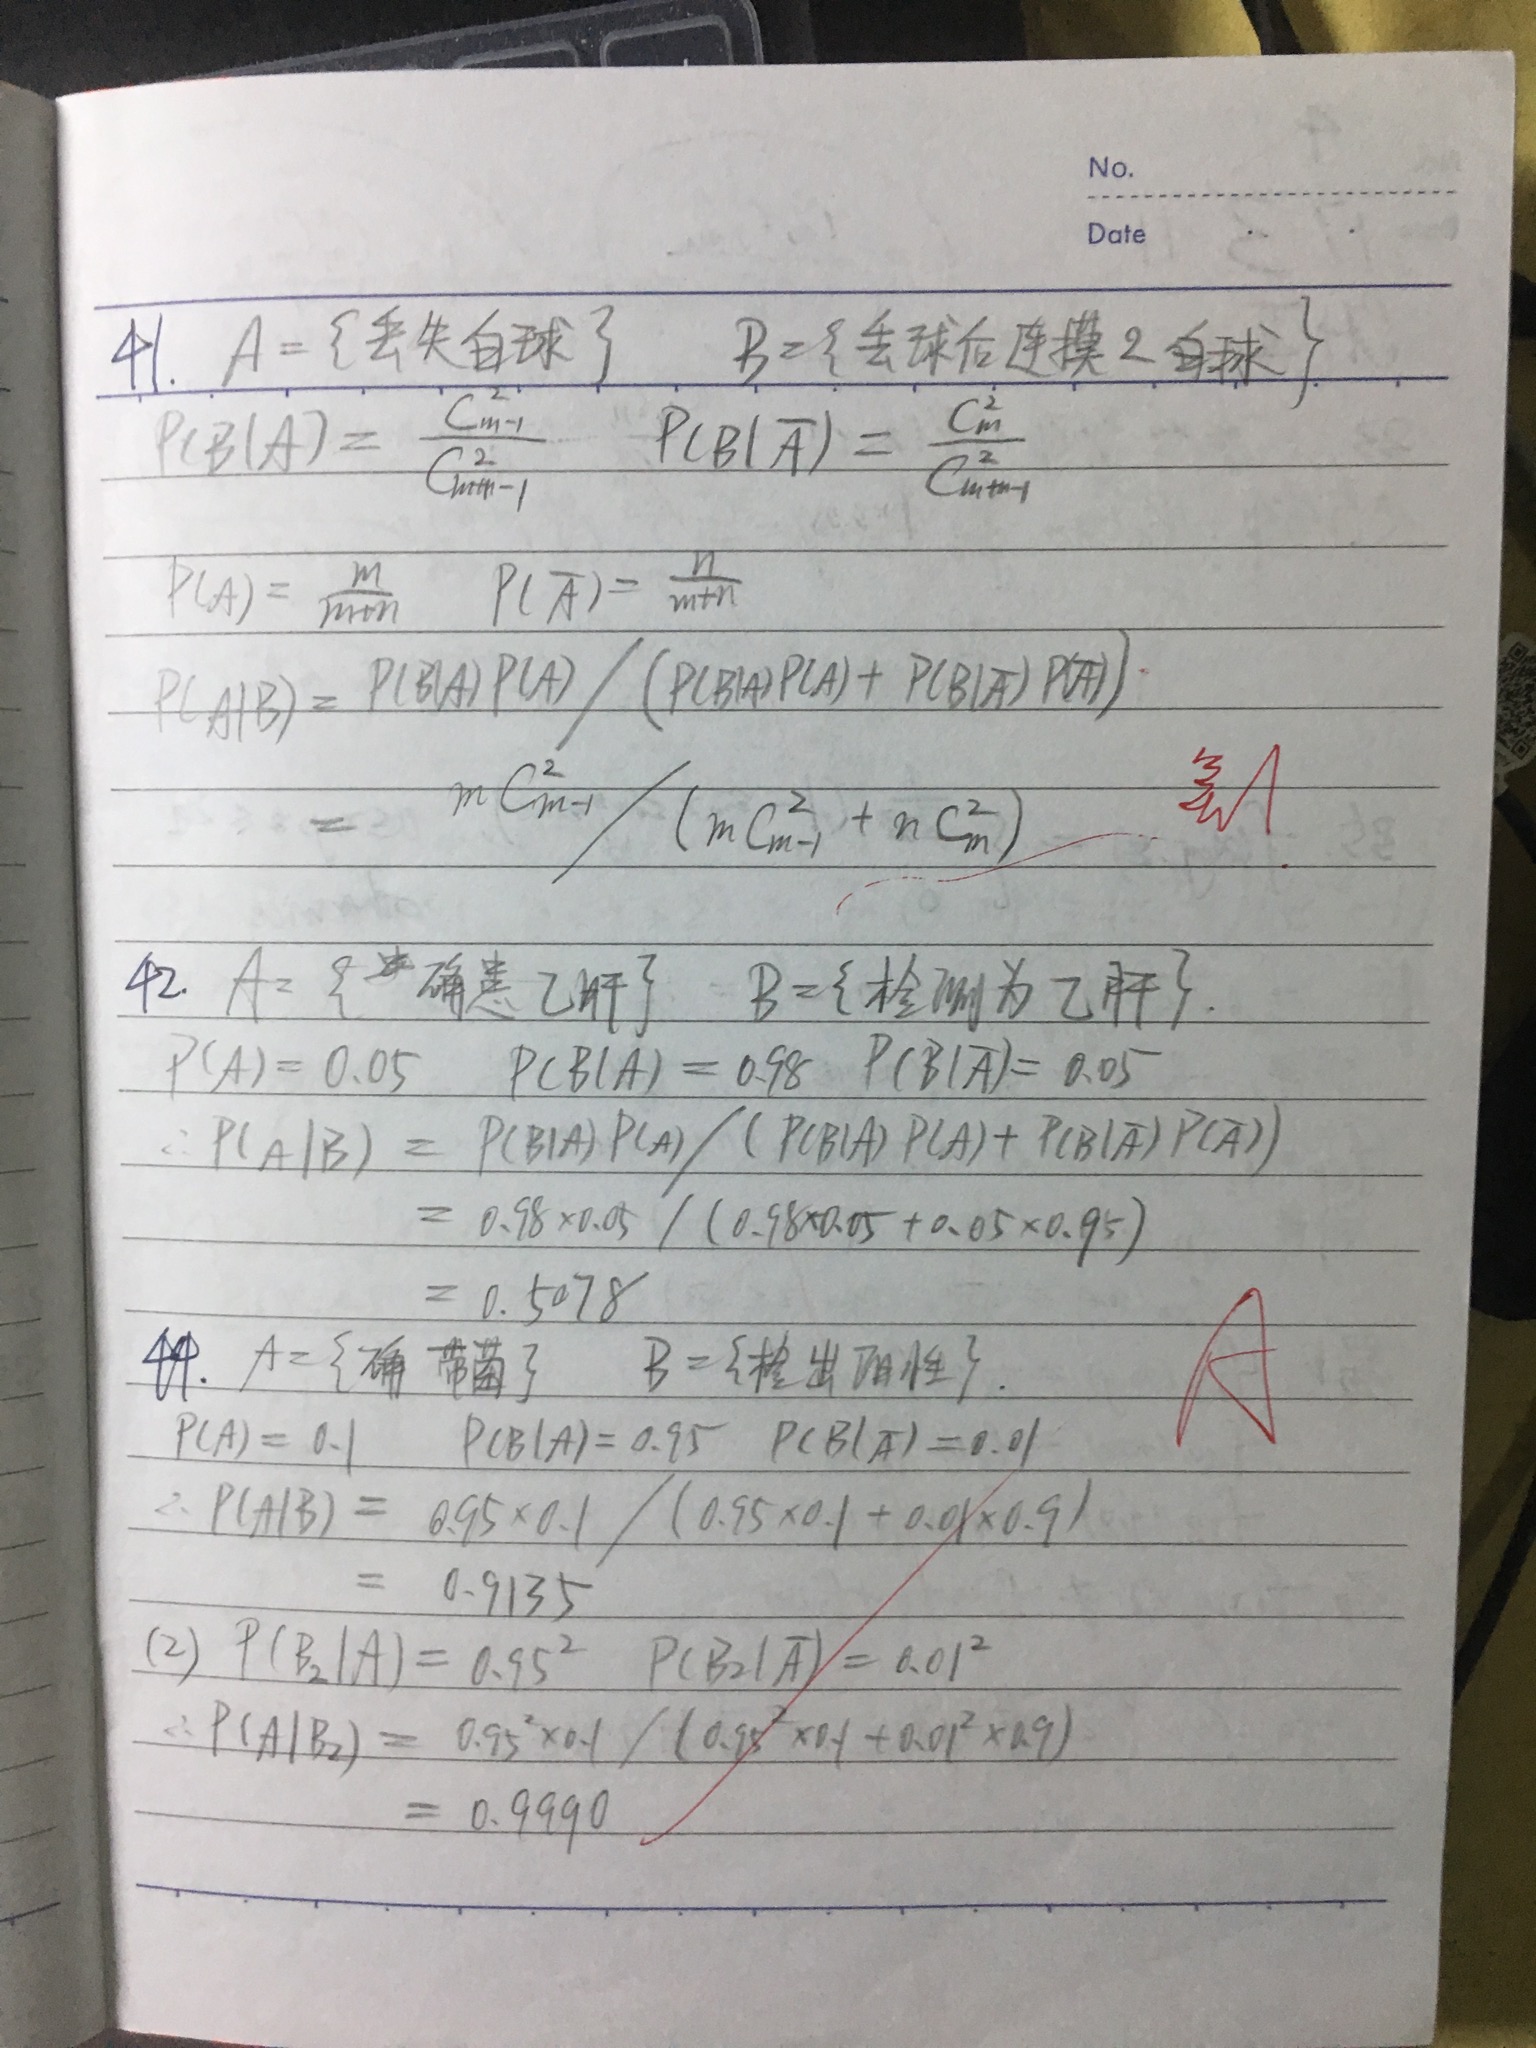 No.
Date
41. A={丢失白球} B={丢球后连摸2白球}
P(B|A) = C²ₘ₋₁ / C²ₘ₊ₙ₋₁ P(B|Ā) = C²ₘ / C²ₘ₊ₙ₋₁
P(A) = m/(m+n) P(Ā) = n/(m+n)
P(A|B) = P(B|A) P(A) / (P(B|A)P(A) + P(B|Ā) P(Ā))
= mC²ₘ₋₁ / (mC²ₘ₋₁ + nC²ₘ)
42. A={确患乙肝} B={检测为乙肝}.
P(A) = 0.05 P(B|A) = 0.98 P(B|Ā) = 0.05
∴ P(A|B) = P(B|A) P(A) / (P(B|A) P(A) + P(B|Ā) P(Ā))
= 0.98×0.05 / (0.98×0.05 + 0.05×0.95)
= 0.5078
44. A={确带菌} B={检出阳性}.
A
P(A) = 0.1 P(B|A) = 0.95 P(B|Ā) = 0.01
∴ P(A|B) = 0.95×0.1 / (0.95×0.1 + 0.01×0.9)
= 0.9135
(2) P(B₂|A) = 0.95² P(B₂|Ā) = 0.01²
∴ P(A|B₂) = 0.95²×0.1 / (0.95²×0.1 + 0.01²×0.9)
= 0.9990